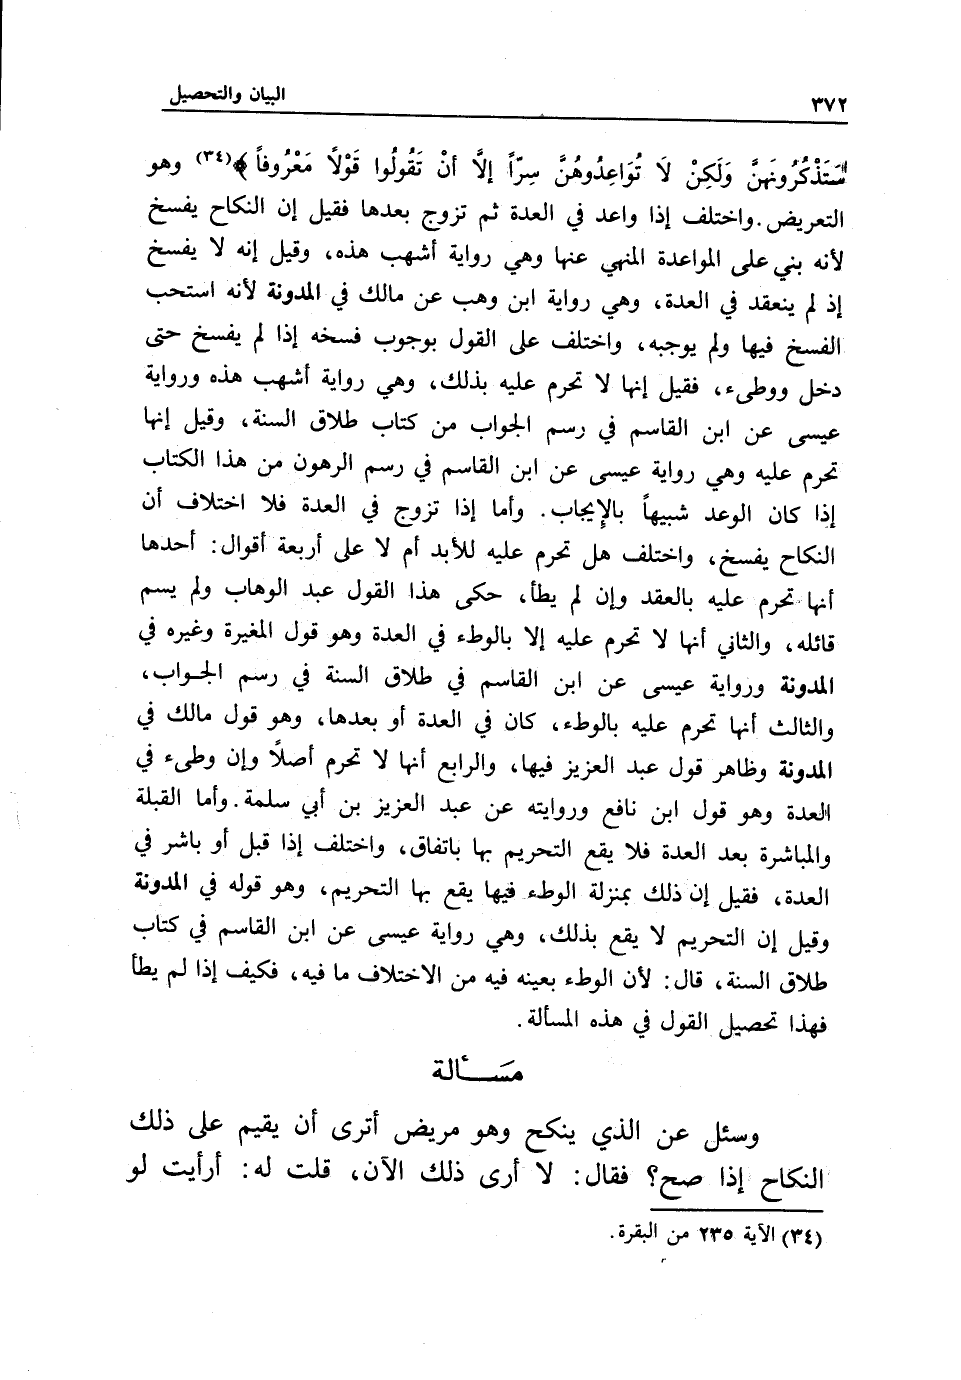 ٣٧٢
البيان والتحصيل
سَتَذْكُرُونَهنَّ وَلَكِنْ لَا تُوَاعِدُوهُنَّ سِرّاً إلَّا أنْ تَقُولُوا قَوْلًا مَعْرُوفاً﴾(٣٤) وهو
التعريض. واختلف إذا واعد في العدة ثم تزوج بعدها فقيل إن النكاح يفسخ
لأنه بني على المواعدة المنهي عنها وهي رواية أشهب هذه، وقيل إنه لا يفسخ
إذ لم ينعقد في العدة، وهي رواية ابن وهب عن مالك في المدونة لأنه استحب
الفسخ فيها ولم يوجبه، واختلف على القول بوجوب فسخه إذا لم يفسخ حتى
دخل ووطىء، فقيل إنها لا تحرم عليه بذلك، وهي رواية أشهب هذه ورواية
عيسى عن ابن القاسم في رسم الجواب من كتاب طلاق السنة، وقيل إنها
تحرم عليه وهي رواية عيسى عن ابن القاسم في رسم الرهون من هذا الكتاب
إذا كان الوعد شبيهاً بالإيجاب. وأما إذا تزوج في العدة فلا اختلاف أن
النكاح يفسخ، واختلف هل تحرم عليه للأبد أم لا على أربعة أقوال: أحدها
أنها تحرم عليه بالعقد وإن لم يطأ، حكى هذا القول عبد الوهاب ولم يسم
قائله، والثاني أنها لا تحرم عليه إلا بالوطء في العدة وهو قول المغيرة وغيره في
المدونة ورواية عيسى عن ابن القاسم في طلاق السنة في رسم الجواب،
والثالث أنها تحرم عليه بالوطء، كان في العدة أو بعدها، وهو قول مالك في
المدونة وظاهر قول عبد العزيز فيها، والرابع أنها لا تحرم أصلاً وإن وطىء في
العدة وهو قول ابن نافع وروايته عن عبد العزيز بن أبي سلمة. وأما القبلة
والمباشرة بعد العدة فلا يقع التحريم بها باتفاق، واختلف إذا قبل أو باشر في
العدة، فقيل إن ذلك بمنزلة الوطء فيها يقع بها التحريم، وهو قوله في المدونة
وقيل إن التحريم لا يقع بذلك، وهي رواية عيسى عن ابن القاسم في كتاب
طلاق السنة، قال: لأن الوطء بعينه فيه من الاختلاف ما فيه، فكيف إذا لم يطأ
فهذا تحصيل القول في هذه المسألة.
مَســألة
وسئل عن الذي ينكح وهو مريض أترى أن يقيم على ذلك
النكاح إذا صح؟ فقال: لا أرى ذلك الآن، قلت له: أرأيت لو
(٣٤) الآية ٢٣٥ من البقرة.